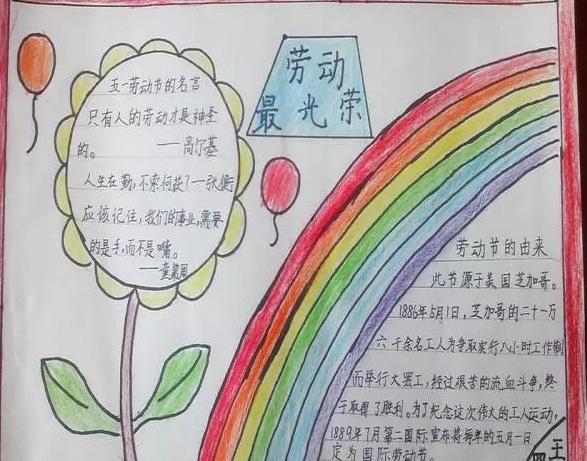 劳动
最光荣
五一劳动节的名言
只有人的劳动才是神圣
的。 ——高尔基
人生在勤,不索何获?—张衡
应该记住,我们的事业,需要
的是手,而不是嘴。
——童第周
劳动节的由来
此节源于美国芝加哥。
1886年5月1日,芝加哥的二十一万
六千余名工人为争取实行八小时工作制
而举行大罢工,经过艰苦的流血斗争,终
于取得了胜利。为了纪念这次伟大的工人运动,
1889年7月第二国际宣布将每年的五月一日
定为国际劳动节。